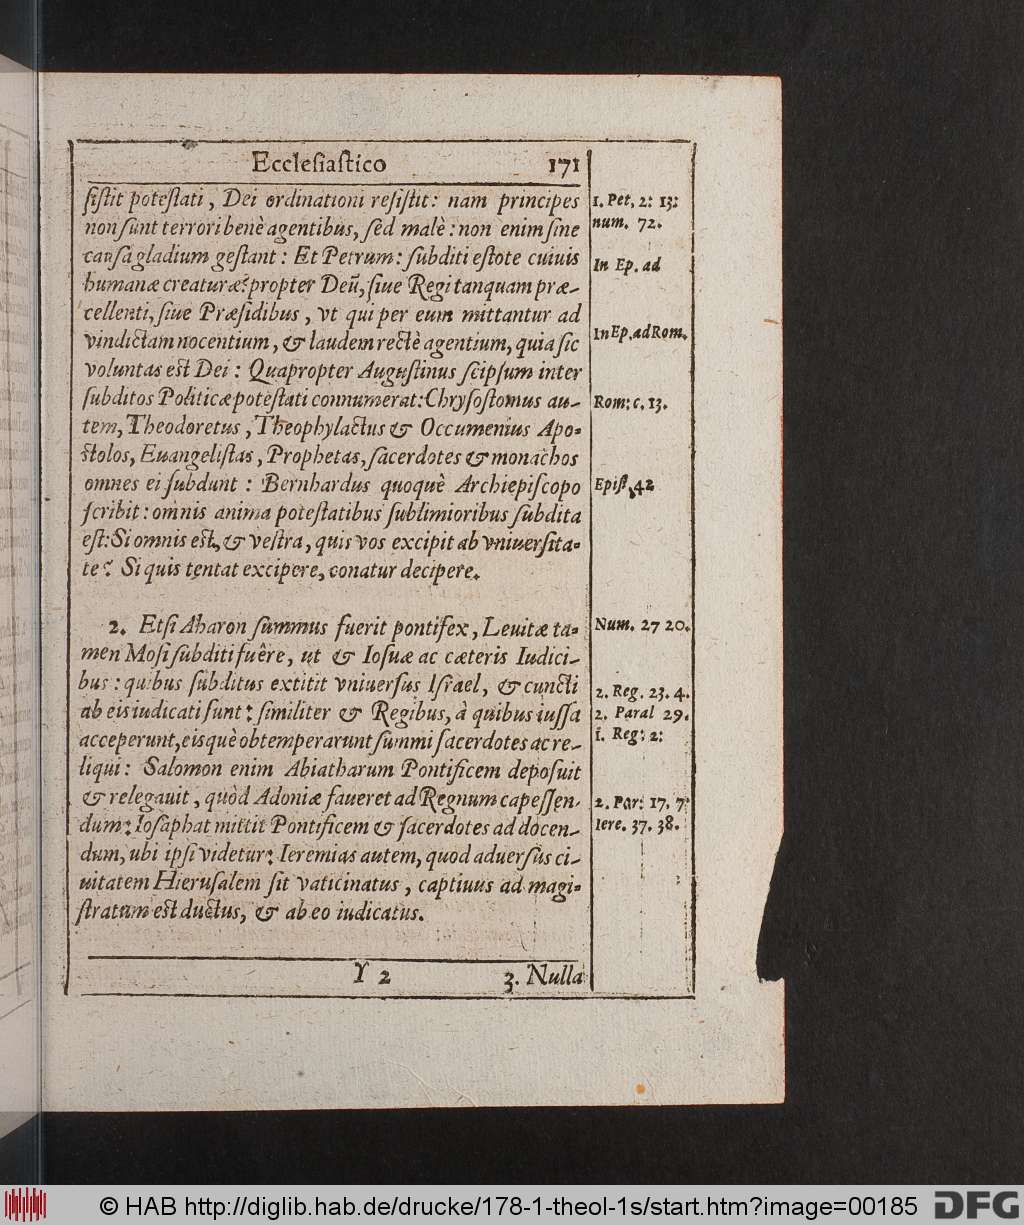 Ecclesiastico 171
ſiſtit poteſtati, Dei ordinationi reſiſtit: nam principes
non ſunt terrori benè agentibus, ſed malè: non enim ſine
cauſa gladium geſtant: Et Petrum: ſubditi eſtote cuiuis
humanæ creaturæ: propter Deũ, ſiue Regi tanquam præ-
cellenti, ſiue Præſidibus, vt qui per eum mittantur ad
vindictam nocentium, & laudem rectè agentium, quia ſic
voluntas eſt Dei: Quapropter Auguſtinus ſeipſum inter
ſubditos Politicæ poteſtati connumerat: Chryſoſtomus au-
tem, Theodoretus, Theophylactus & Occumenius Apo-
ſtolos, Euangeliſtas, Prophetas, ſacerdotes & monachos
omnes ei ſubdunt: Bernhardus quoquè Archiepiſcopo
ſcribit: omnis anima poteſtatibus ſublimioribus ſubdita
eſt: Si omnis eſt, & veſtra, quis vos excipit ab vniuerſita-
te? Si quis tentat excipere, conatur decipere.
2. Etſi Aharon ſummus fuerit pontifex, Leuitæ ta-
men Moſi ſubditi fuêre, ut & Ioſuæ ac cæteris Iudici-
bus: quibus ſubditus extitit vniuerſus Iſrael, & cuncti
ab eis iudicati ſunt: ſimiliter & Regibus, à quibus iuſſa
acceperunt, eisquè obtemperarunt ſummi ſacerdotes ac re-
liqui: Salomon enim Abiatharum Pontificem depoſuit
& relegauit, quòd Adoniæ faueret ad Regnum capeſſen-
dum: Ioſaphat mittit Pontificem & ſacerdotes ad docen-
dum, ubi ipſi videtur: Ieremias autem, quod aduerſus ci-
uitatem Hieruſalem ſit vaticinatus, captiuus ad magi-
ſtratum eſt ductus, & ab eo iudicatus.
Y 2 3. Nulla
1. Pet. 2: 13:
num. 72.
In Ep. ad
In Ep. ad Rom.
Rom: c. 13.
Epiſt. 42
Num. 27 20.
2. Reg. 23. 4.
2. Paral 29.
1. Reg: 2:
2. Par: 17. 7:
Iere. 37. 38.
© HAB http://diglib.hab.de/drucke/178-1-theol-1s/start.htm?image=00185
DFG